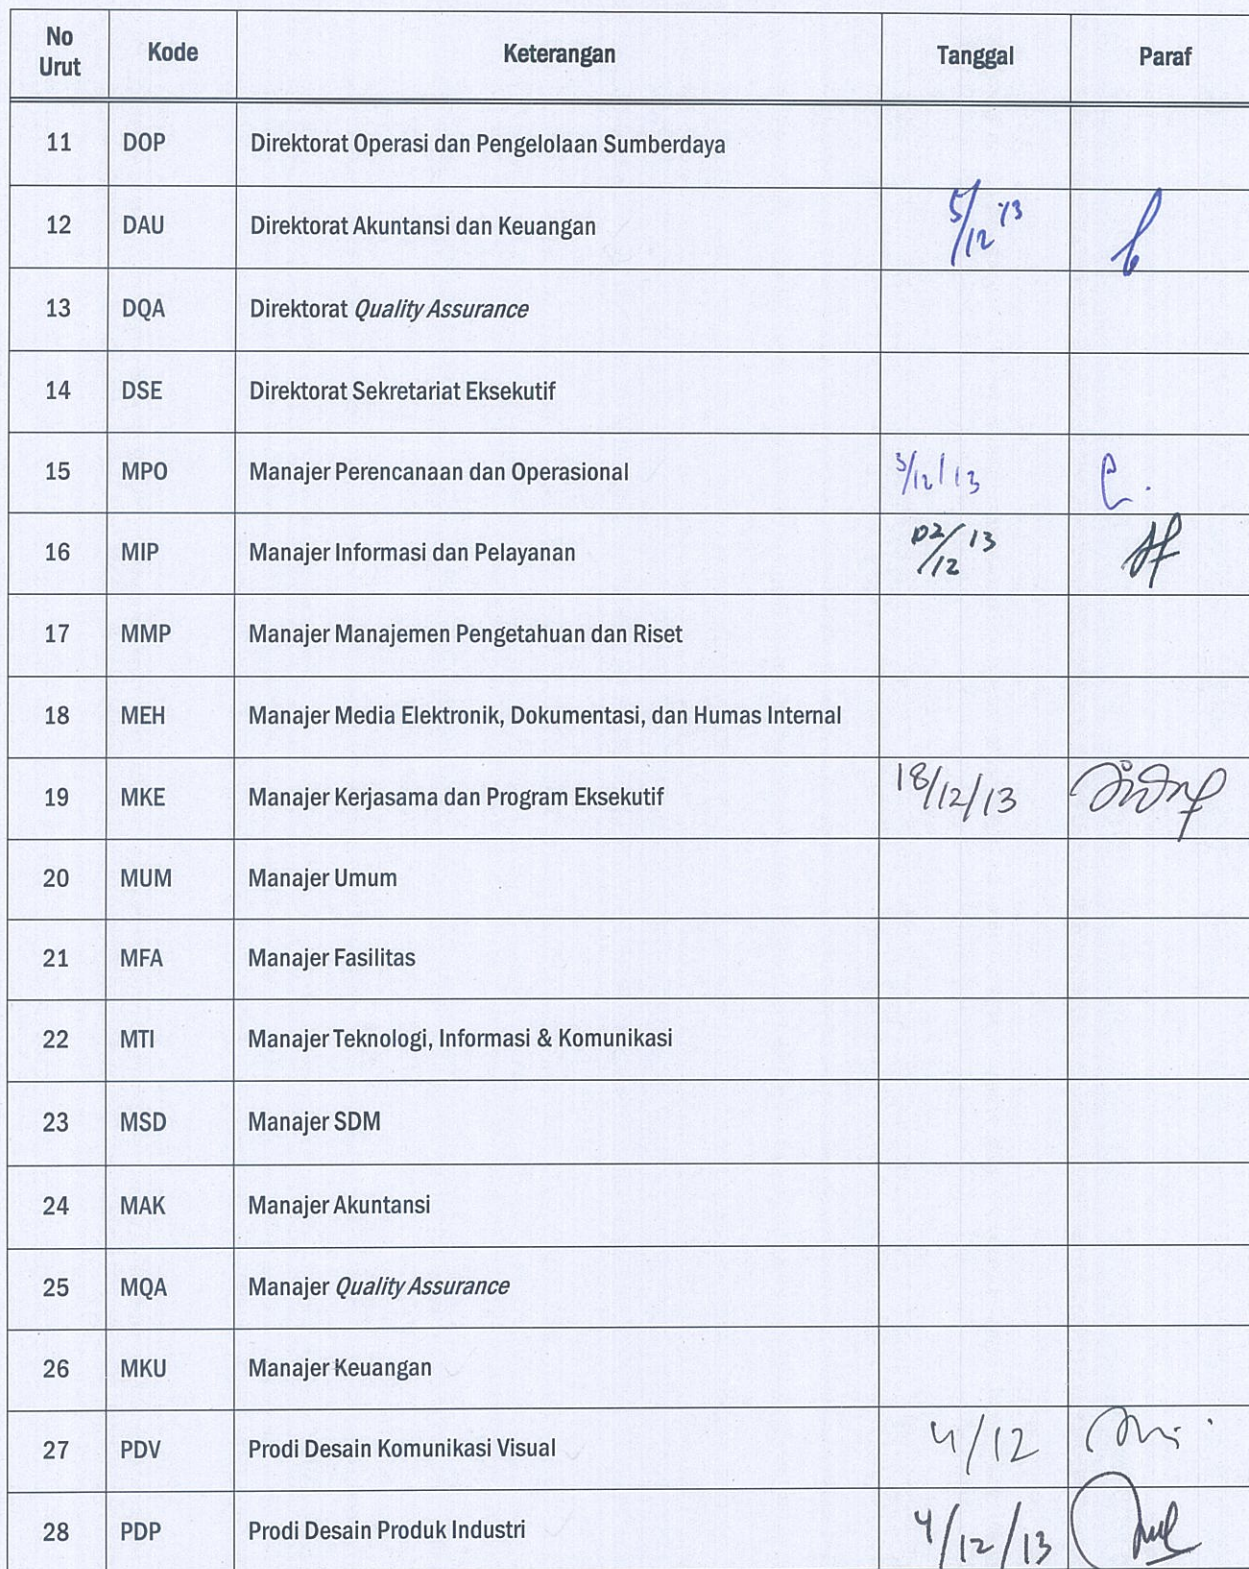 No Urut Kode Keterangan Tanggal Paraf
11 DOP Direktorat Operasi dan Pengelolaan Sumberdaya
12 DAU Direktorat Akuntansi dan Keuangan 5/12 '13
13 DQA Direktorat Quality Assurance
14 DSE Direktorat Sekretariat Eksekutif
15 MPO Manajer Perencanaan dan Operasional 3/12/13
16 MIP Manajer Informasi dan Pelayanan 02/12 13
17 MMP Manajer Manajemen Pengetahuan dan Riset
18 MEH Manajer Media Elektronik, Dokumentasi, dan Humas Internal
19 MKE Manajer Kerjasama dan Program Eksekutif 18/12/13
20 MUM Manajer Umum
21 MFA Manajer Fasilitas
22 MTI Manajer Teknologi, Informasi & Komunikasi
23 MSD Manajer SDM
24 MAK Manajer Akuntansi
25 MQA Manajer Quality Assurance
26 MKU Manajer Keuangan
27 PDV Prodi Desain Komunikasi Visual 4/12
28 PDP Prodi Desain Produk Industri 4/12/13